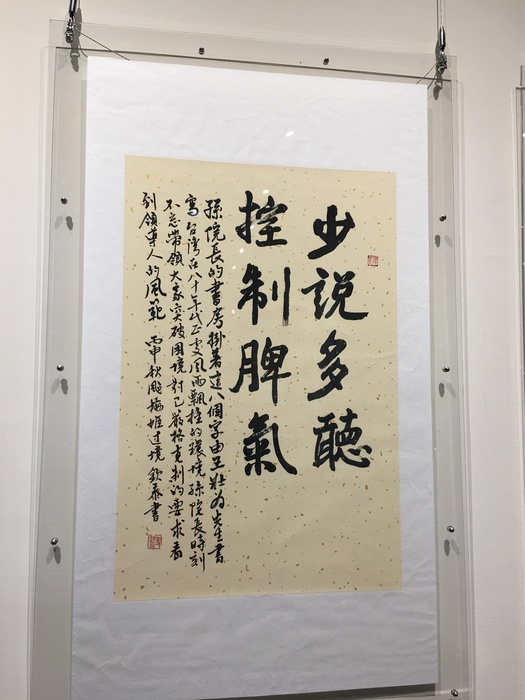 少說多聽
控制脾氣
孫院長的書房掛著這八個字由王壯為先生書
寫台灣在八十年代正受風雨飄搖的環境孫院長時刻
不忘帶領大家突破困境對己嚴格克制的要求看
到領導人的風範 丙申秋颱梅姬过境 欽泰書